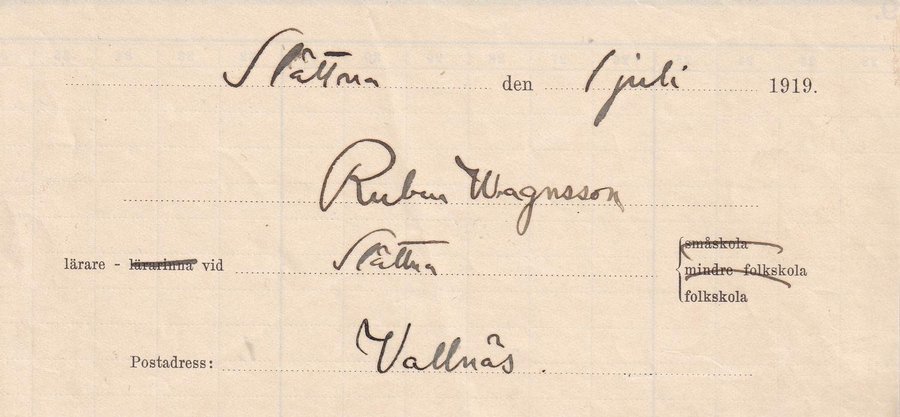 Slättna den 1 juli 1919.
Ruben Wagnsson
småskola
lärare - lärarinna vid Slättna mindre folkskola
folkskola
Postadress: Vallnäs